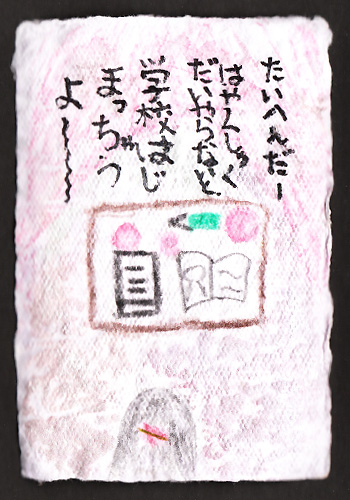 たいへんだー
はやくしゅく
だいやらないと
学校はじ
まっちゃう
よ〜〜〜